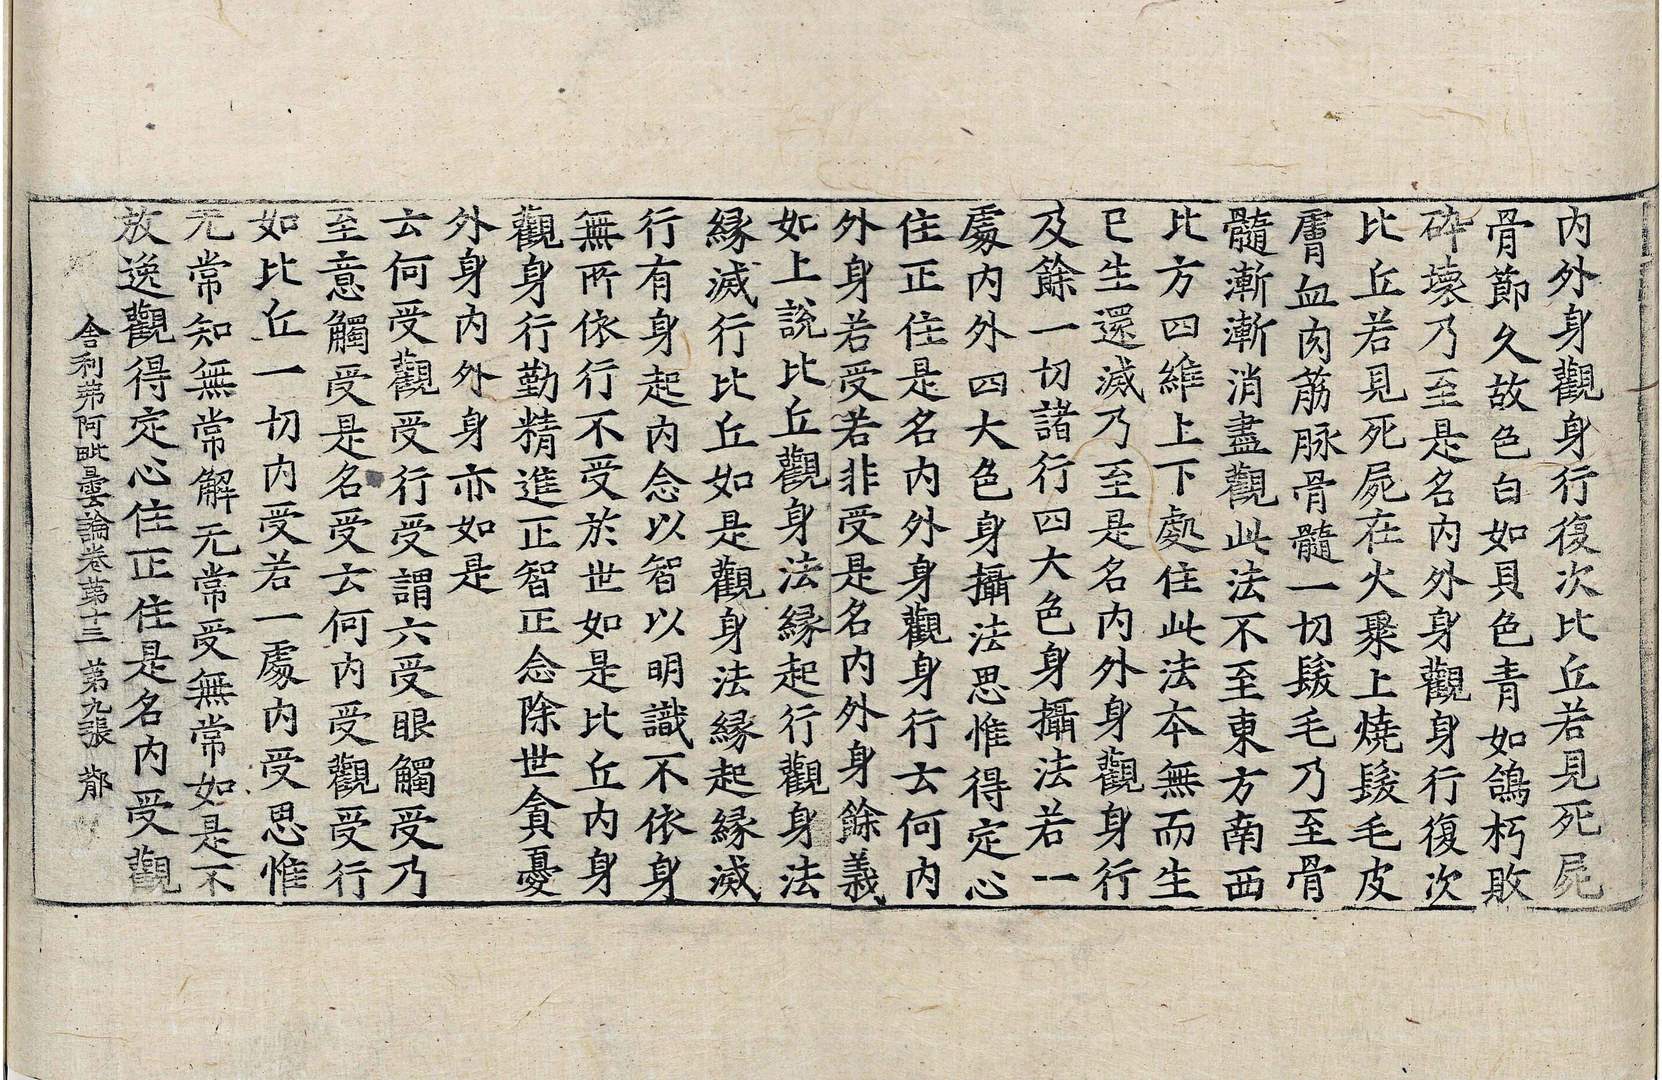 內外身觀身行復次比丘若見死屍
骨節久故色白如貝色青如鴿朽敗
碎壞乃至是名內外身觀身行復次
比丘若見死屍在火聚上燒髮毛皮
膚血肉筋脉骨髓一切髮毛乃至骨
髓漸漸消盡觀此法不至東方南西
北方四維上下處住此法本無而生
已生還滅乃至是名內外身觀身行
及餘一切諸行四大色身攝法若一
處內外四大色身攝法思惟得定心
住正住是名內外身觀身行云何內
外身若受若非受是名內外身餘義
如上說比丘觀身法緣起行觀身法
緣滅行比丘如是觀身法緣起緣滅
行有身起內念以智以明識不依身
無所依行不受於世如是比丘內身
觀身行勤精進正智正念除世貪憂
外身內外身亦如是
云何受觀受行受謂六受眼觸受乃
至意觸受是名受云何內受觀受行
如比丘一切內受若一處內受思惟
无常知無常解无常受無常如是不
放逸觀得定心住正住是名內受觀
舍利弗阿毗曇論卷第十三 第九張 鄁